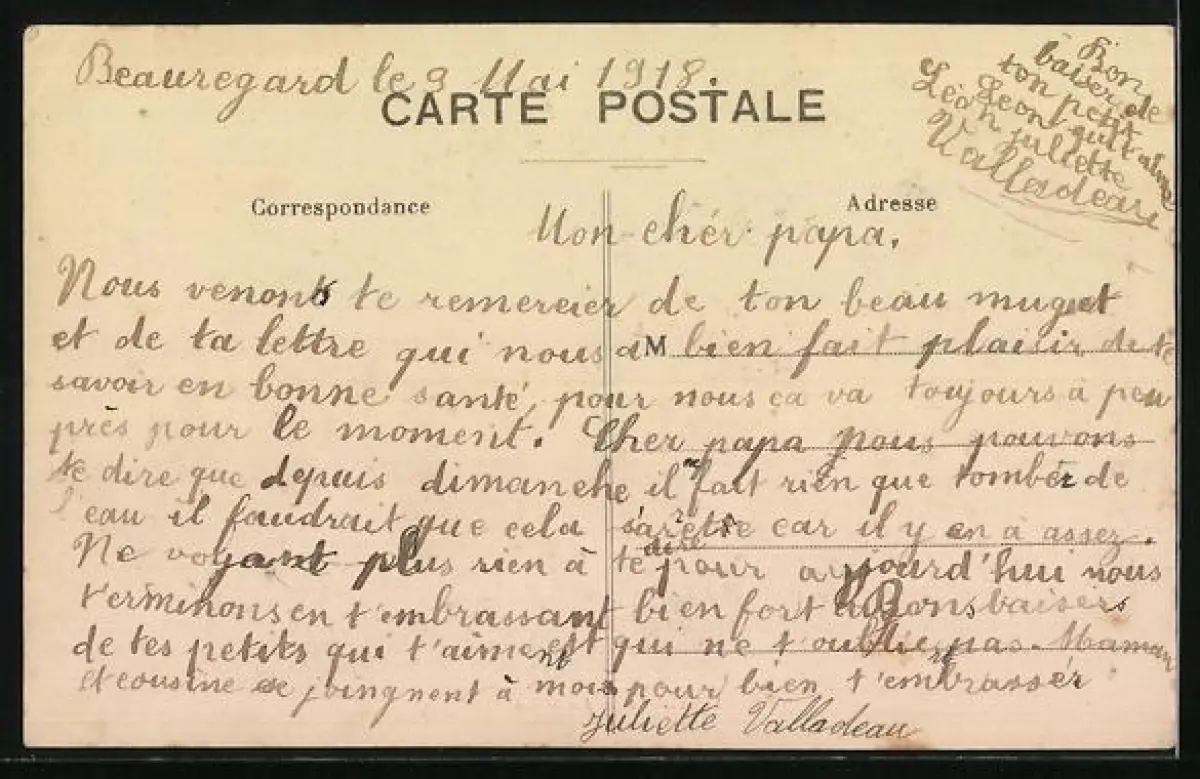 Beauregard le 9 Mai 1918.
CARTE POSTALE
Bon
baiser de
ton petit
Leon qui t'aime
Léon juliette
Valladeau
Correspondance
Adresse
Mon chér papa.
Nous venons te remercier de ton beau muguet
et de ta lettre qui nous a M bien fait plaisir de te
savoir en bonne santé, pour nous ca va toujours à peu
près pour le moment. Cher papa nous pouvons
te dire que depuis dimanche il ne fait rien que tomber de
l'eau il faudrait que cela s'arette car il y en a assez.
Ne voyant plus rien à te dire pour aujourd'hui nous
terminons en t'embrassant bien fort Bons baisers
de tes petits qui t'aiment qui ne t'oublie pas. Maman
et cousine se joingnent à moi pour bien t'embrassér
Juliette Valladeau